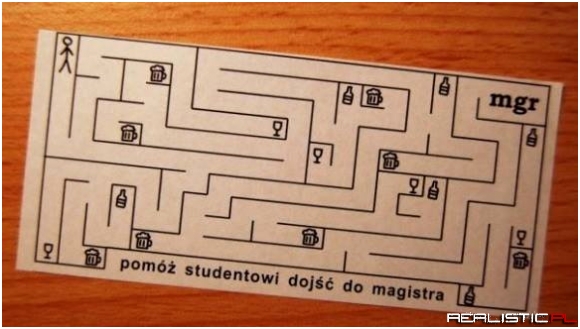 mgr
pomóż studentowi dojść do magistra
REALISTIC.PL